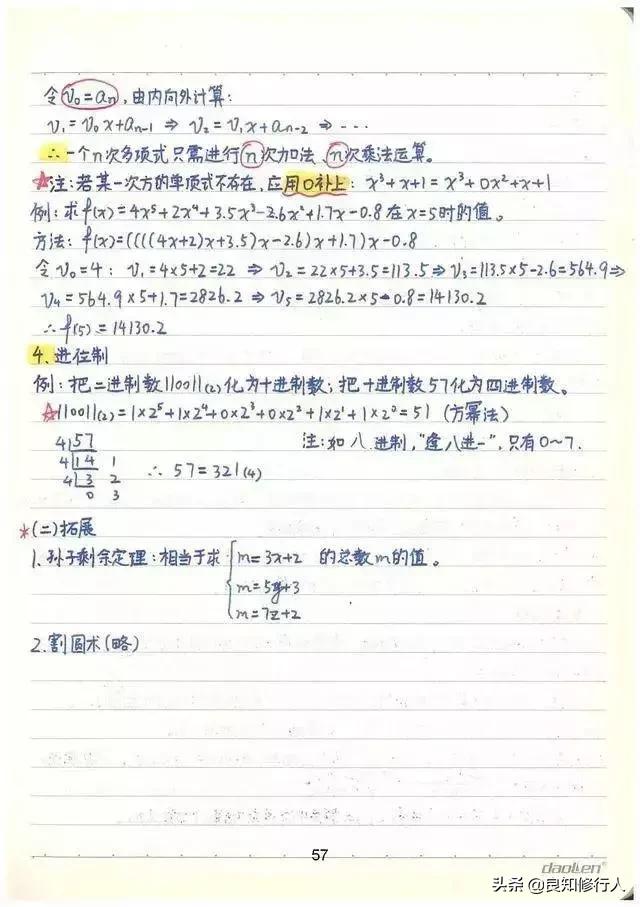 令v₀=aₙ,由内向外计算:
v₁=v₀x+aₙ₋₁ ⇒ v₂=v₁x+aₙ₋₂ ⇒ ···
∴一个n次多项式只需进行n次加法、n次乘法运算。
☆注:若某一次方的单项式不存在,应用0补上:x³+x+1=x³+0x²+x+1
例:求f(x)=4x⁵+2x⁴+3.5x³-2.6x²+1.7x-0.8在x=5时的值。
方法:f(x)=((((4x+2)x+3.5)x-2.6)x+1.7)x-0.8
令v₀=4:v₁=4×5+2=22 ⇒ v₂=22×5+3.5=113.5 ⇒ v₃=113.5×5-2.6=564.9 ⇒
v₄=564.9×5+1.7=2826.2 ⇒ v₅=2826.2×5-0.8=14130.2
∴f(5)=14130.2
4.进位制
例:把二进制数110011(2)化为十进制数;把十进制数57化为四进制数。
☆110011(2)=1×2⁵+1×2⁴+0×2³+0×2²+1×2¹+1×2⁰=51 (方幂法)
4 57 注:如八进制,"逢八进一",只有0~7.
4 14 1
∴ 57=321(4)
4 3 2
0 3
*(二)拓展
1.孙子剩余定理:相当于求 m=3x+2 的总数m的值。
m=5y+3
m=7z+2
2.割圆术(略)
57
daoLen®
头条@良知修行人